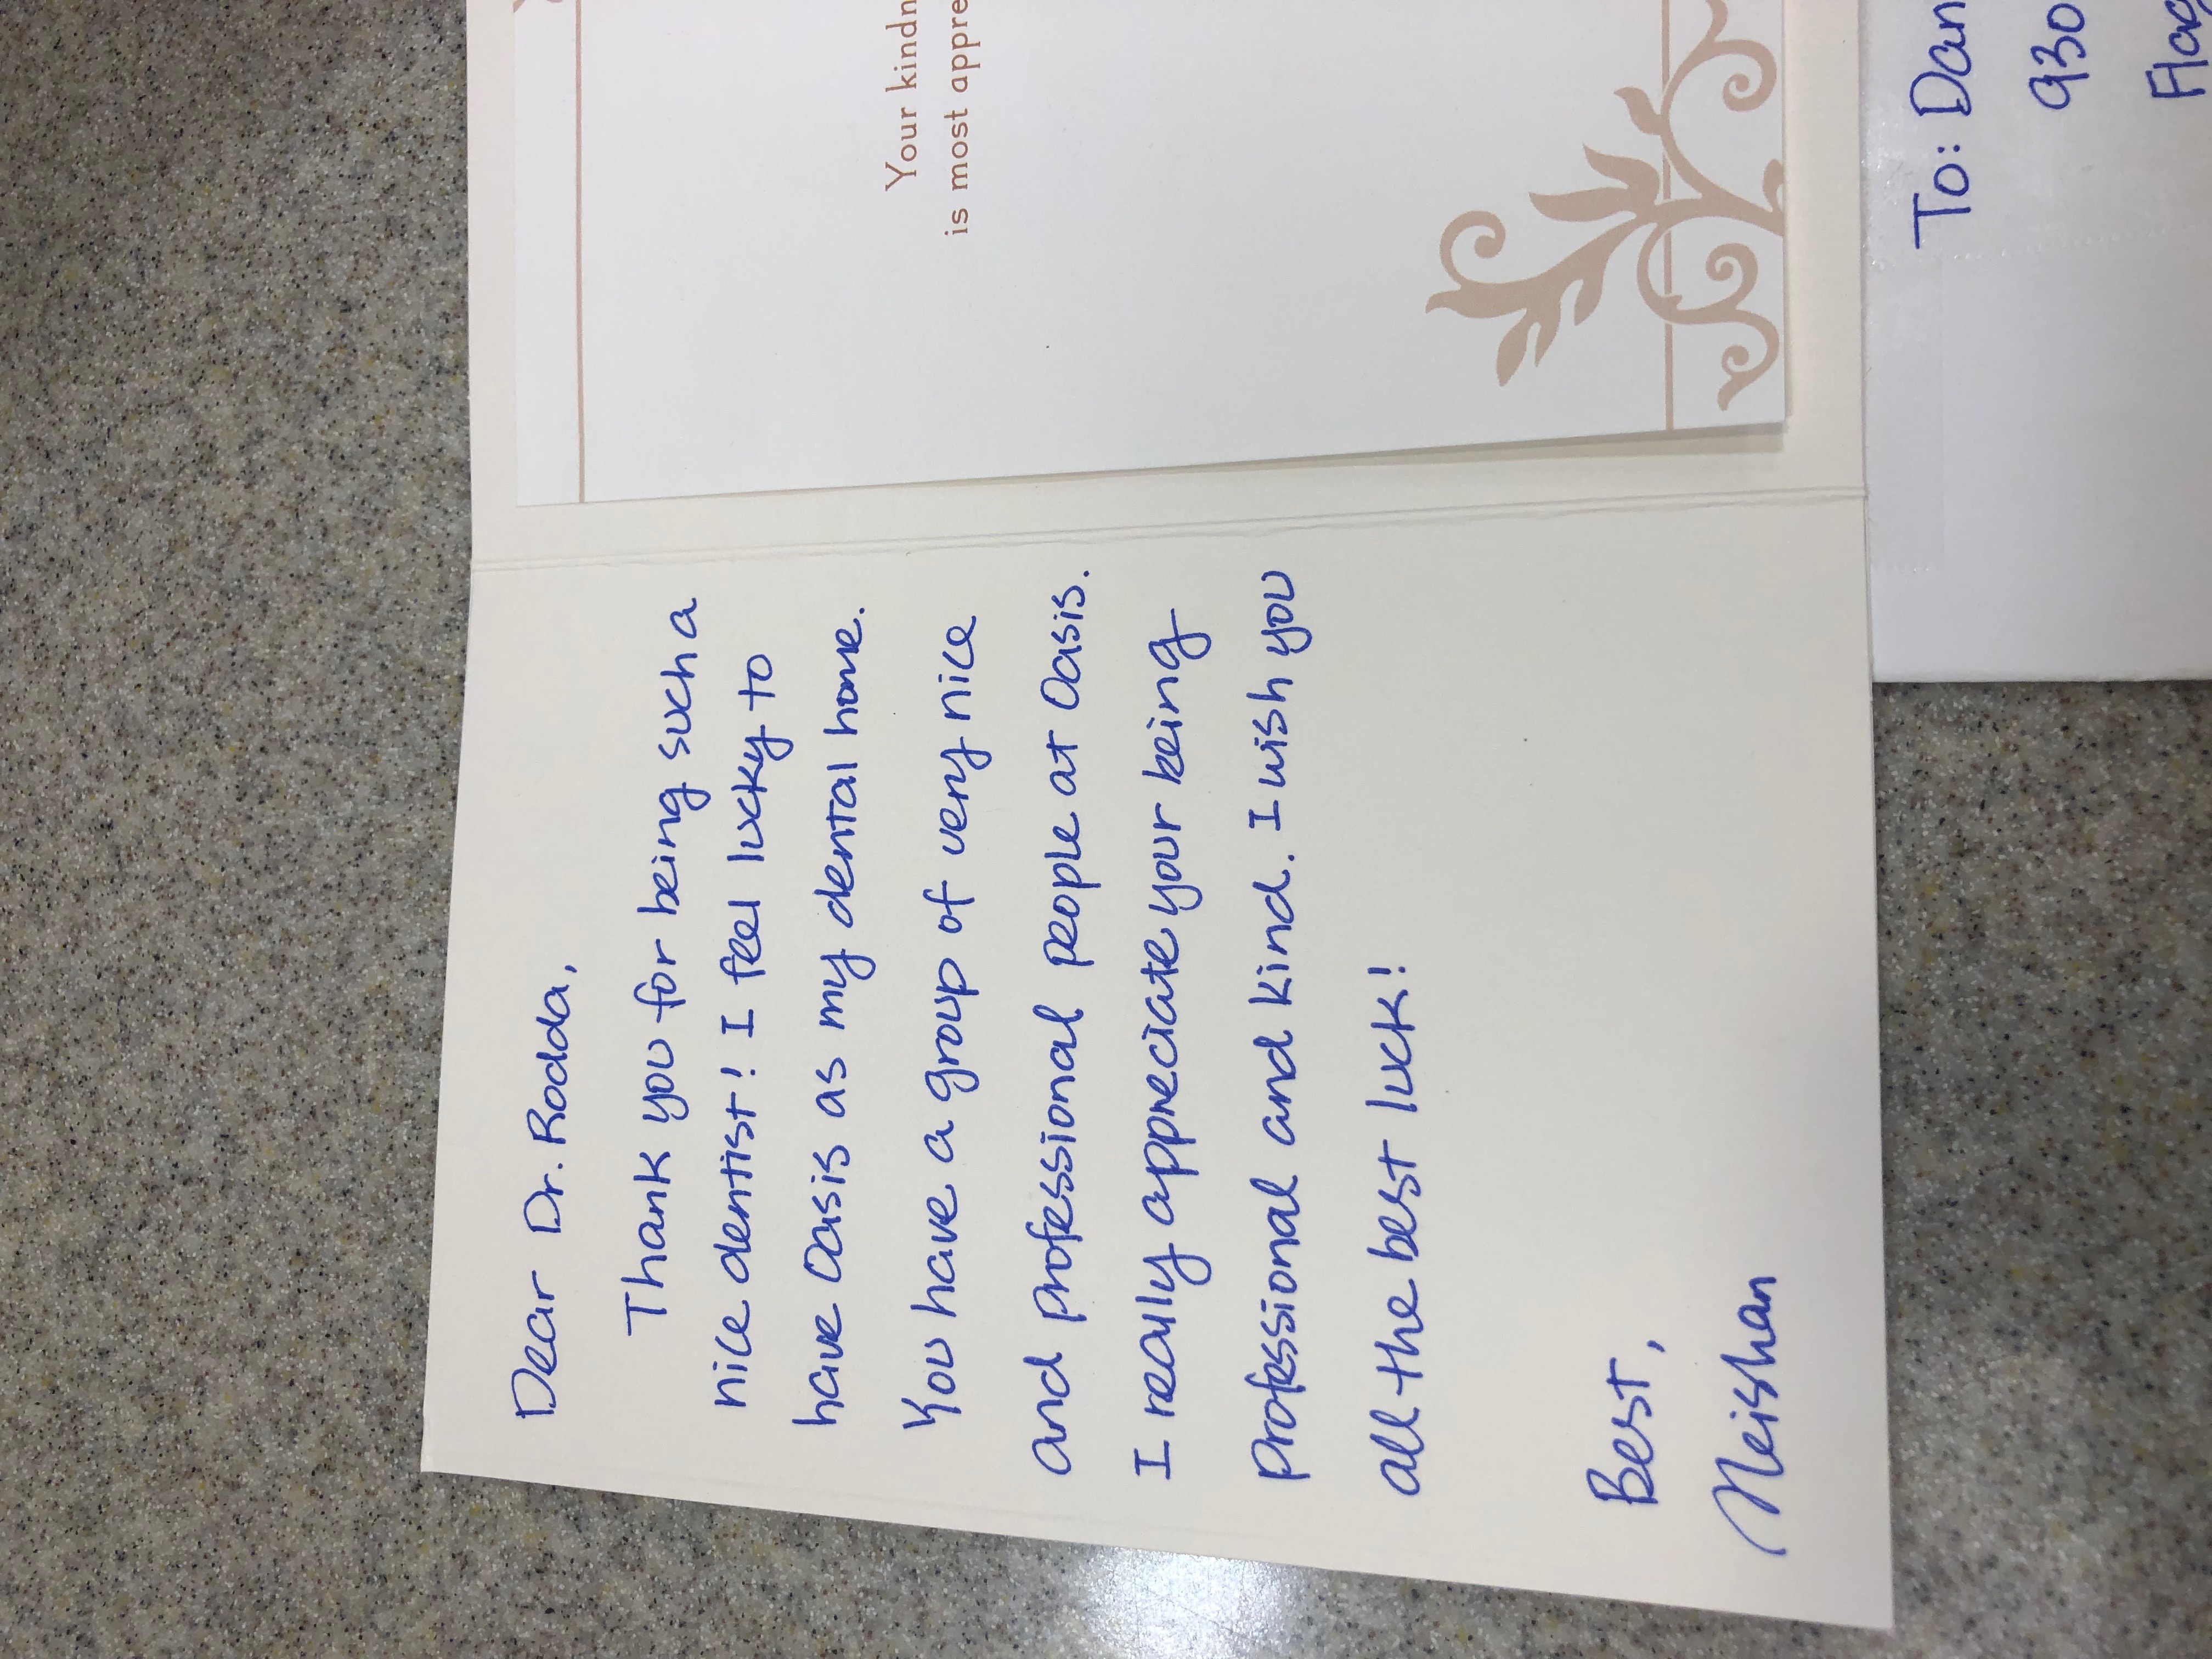 Dear Dr. Rodda,
Thank you for being such a
nice dentist! I feel lucky to
have Oasis as my dental home.
You have a group of very nice
and professional people at Oasis.
I really appreciate your being
professional and kind. I wish you
all the best luck!
Best,
Meishan
Your kindn
is most appre
To: Dan
930
Flag